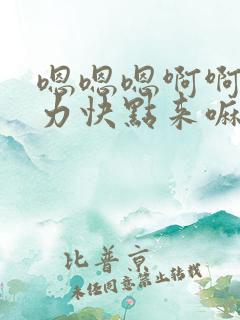 嗯嗯嗯啊啊
力快點来嘛
比普京
未经同意禁止转载